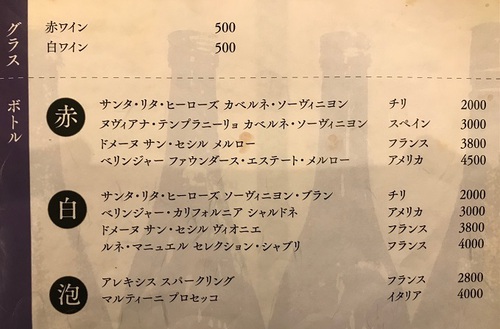 グラス
赤ワイン 500
白ワイン 500
ボトル
赤
サンタ・リタ・ヒーローズ カベルネ・ソーヴィニヨン チリ 2000
ヌヴィアナ・テンプラニーリョ カベルネ・ソーヴィニヨン スペイン 3000
ドメーヌ サン・セシル メルロー フランス 3800
ベリンジャー ファウンダース・エステート・メルロー アメリカ 4500
白
サンタ・リタ・ヒーローズ ソーヴィニヨン・ブラン チリ 2000
ベリンジャー・カリフォルニア シャルドネ アメリカ 3000
ドメーヌ サン・セシル ヴィオニエ フランス 3800
ルネ・マニュエル セレクション・シャブリ フランス 4000
泡
アレキシス スパークリング フランス 2800
マルティーニ プロセッコ イタリア 4000